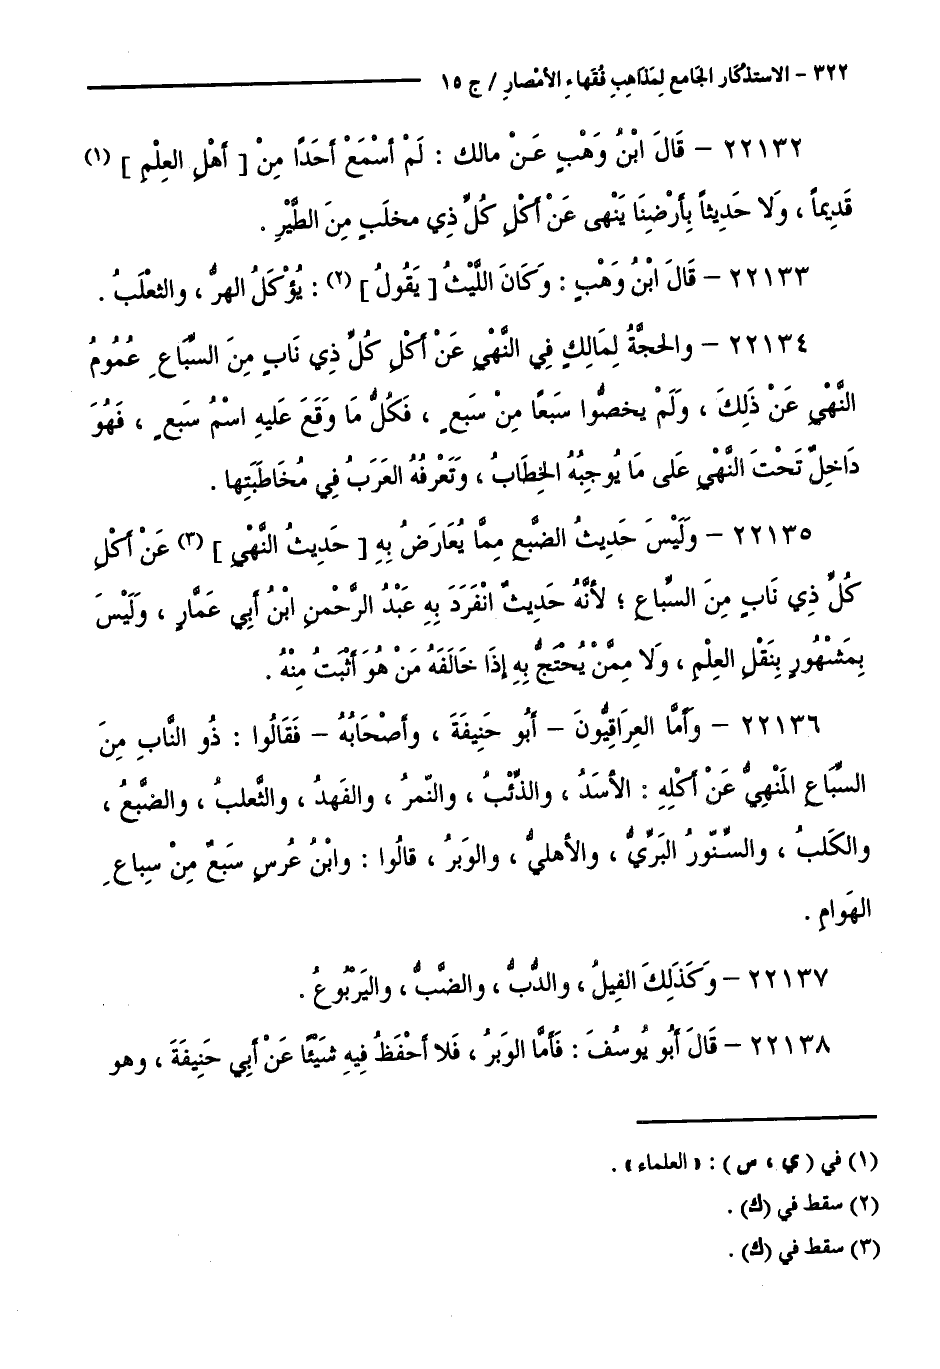 ٣٢٢ – الاستذكار الجامع لِمَذاهِبِ فُقَهاءِ الأمْصارِ / ج ١٥
٢٢١٣٢ – قَالَ ابْنُ وَهْبٍ عَـنْ مالك : لَمْ أسْمَعْ أحَدًا مِنْ [ أهْلِ العِلْمِ ] (١)
قَدِيماً ، وَلا حَدِيثاً بِأرْضِنَا يَنْهى عَنْ أكْلِ كُلِّ ذِي مخلَبٍ مِنَ الطَّيْرِ .
٢٢١٣٣ – قَالَ ابْنُ وَهْبٍ : وَكَانَ اللَّيْثُ [ يَقُولُ ] (٢) : يُؤْكَلُ الهرُّ ، والثعْلَبُ .
٢٢١٣٤ – والحجَّةُ لِمَالِكٍ فِي النَّهْيِ عَنْ أكْلِ كُلِّ ذِي نَابٍ مِنَ السِّبَاعِ عُمُومُ
النَّهْيِ عَنْ ذَلِكَ ، وَلَمْ يخصُّوا سَبعًا مِنْ سَبعٍ ، فَكُلُّ مَا وَقَعَ عَليهِ اسْمُ سَبعٍ ، فَهُوَ
دَاخِلٌ تَحْتَ النَّهْيِ عَلى مَا يُوجِبُهُ الخِطَابُ ، وَتَعْرِفُهُ العَرَبُ فِي مُخَاطَبَتِها .
٢٢١٣٥ – وَلَيْسَ حَدِيثُ الضبعِ مِمَّا يُعَارَضُ بِهِ [ حَدِيثُ النَّهْيِ ] (٣) عَنْ أكْلِ
كُلِّ ذِي نَابٍ مِنَ السِّبَاعِ ؛ لأنَّهُ حَدِيثٌ انْفَرَدَ بِهِ عَبْدُ الرَّحْمنِ ابْنُ أبِي عَمَّارٍ ، وَلَيْسَ
بِمَشْهُورٍ بِنَقْلِ العِلْمِ ، وَلا مِمَّنْ يُحْتَجُّ بِهِ إذَا خَالَفَهُ مَنْ هُوَ أثْبَتُ مِنْهُ .
٢٢١٣٦ – وَأمَّا العِرَاقِيُّونَ – أبُو حَنِيفَةَ ، وأصْحَابُهُ – فَقَالُوا : ذُو النَّابِ مِنَ
السِّبَاعِ المَنْهِيُّ عَنْ أكْلِهِ : الأسَدُ ، والذِّئْبُ ، والنّمرُ ، والفَهدُ ، والثَّعلبُ ، والضَّبعُ ،
والكَلبُ ، والسِّنّورُ البَرِّيُّ ، والأهليُّ ، والوَبرُ ، قالُوا : وابْنُ عُرسٍ سَبعٌ مِنْ سِباعِ
الهَوامِ .
٢٢١٣٧ – وَكَذَلِكَ الفِيلُ ، والدُّبُّ ، والضَّبُّ ، واليَرْبُوعُ .
٢٢١٣٨ – قَالَ أبُو يُوسُفَ : فَأمَّا الوَبرُ ، فَلا أحْفَظُ فِيهِ شَيْئًا عَنْ أبِي حَنِيفَةَ ، وهو
(١) في ( ي ، س ) : « العلماء » .
(٢) سقط في (ك) .
(٣) سقط في (ك) .